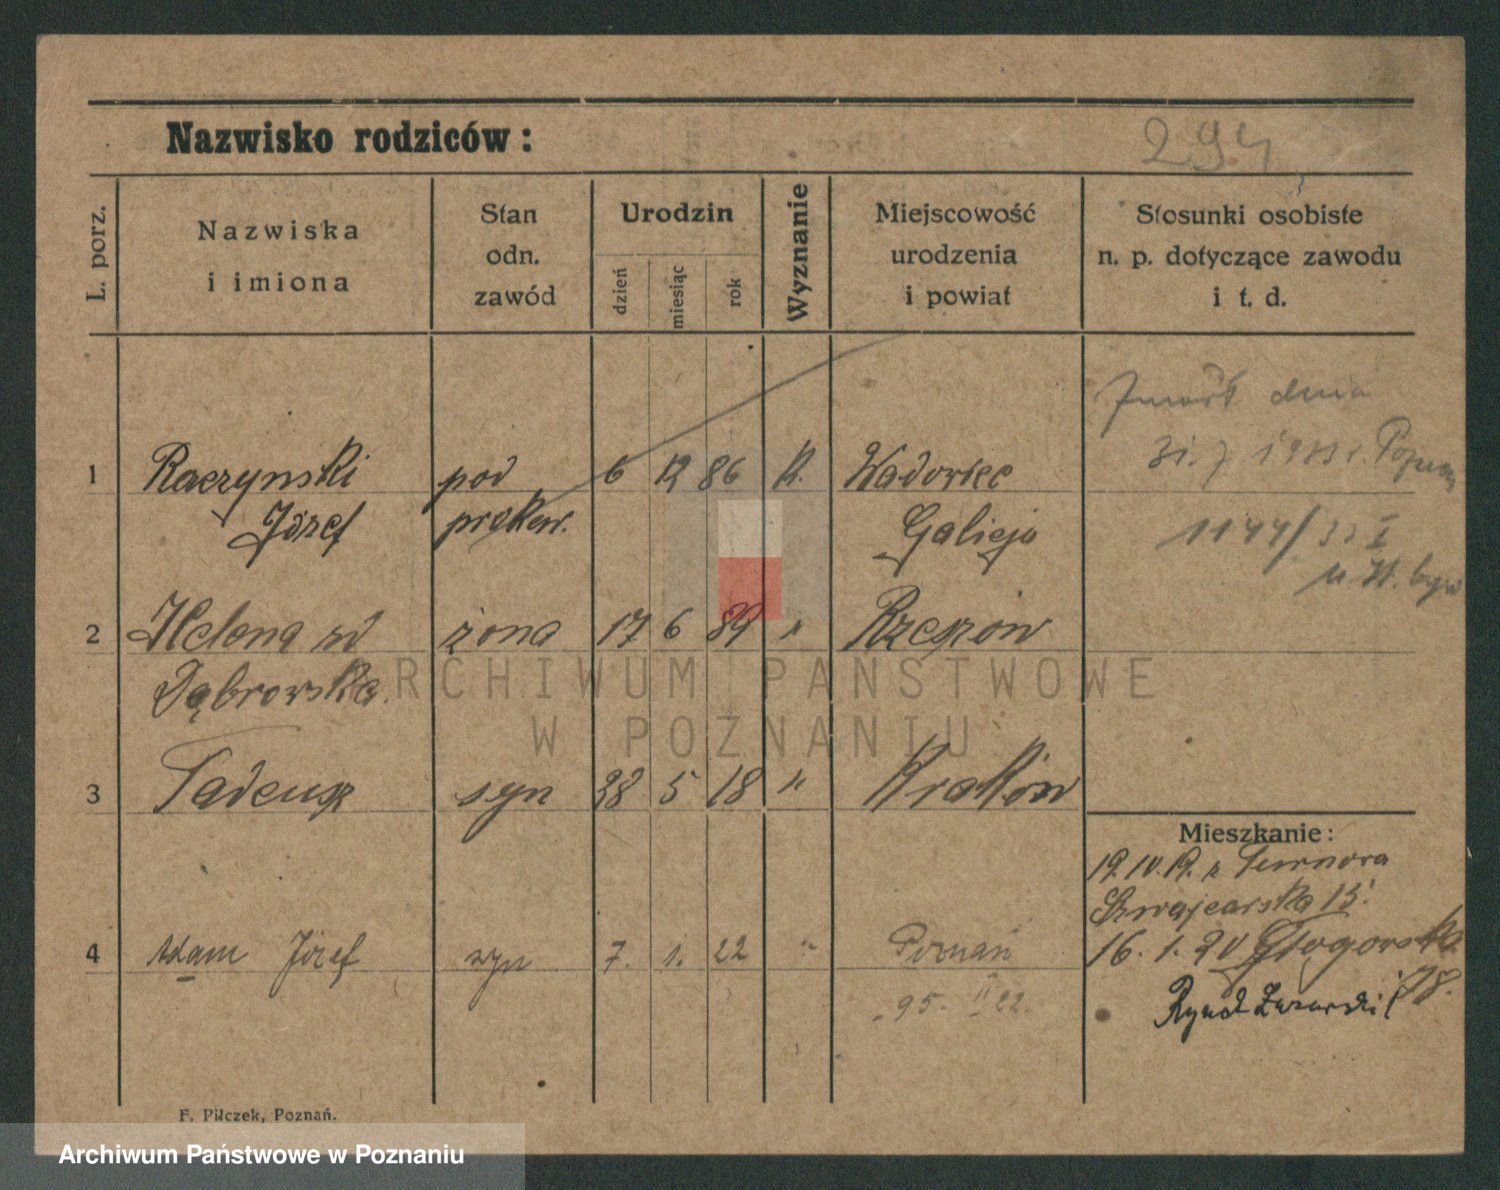 Nazwisko rodziców:
294
L. porz.
Nazwiska
i imiona
Stan
odn.
zawód
Urodzin
dzień
miesiąc
rok
Wyznanie
Miejscowość
urodzenia
i powiat
Stosunki osobiste
n. p. dotyczące zawodu
i t. d.
Zmarł dnia
31. 7 Poznań
1 Raczynski pod 6 12 86 K. Wadowice
Józef prokur. Galicja
1144/33 I
2 Helena zd żona 17 6 89 " Rzeszów
Dąbrowska.
3 Tadeusz syn 28 5 18 " Kraków
Mieszkanie:
19.IV.19. z
Szwajcarska 15.
4 Adam Józef syn 7. 1. 22 " Poznań
16.1.20 Głogowska
78.
95. II 22.
Rynek Łazarski 1
F. Pilczek, Poznań.
ARCHIWUM PAŃSTWOWE
W POZNANIU
Archiwum Państwowe w Poznaniu